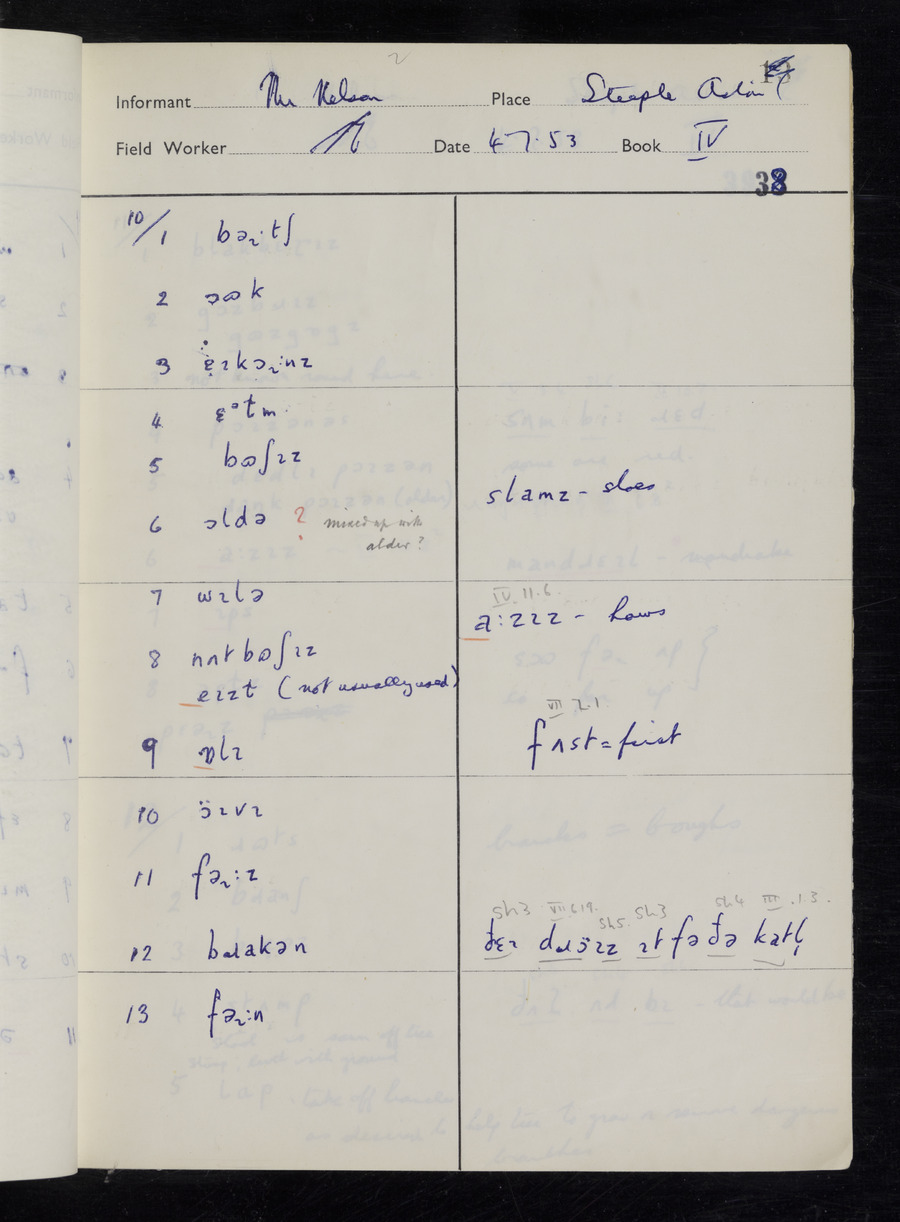 Informant Mr Nelson Place Steeple Aston
Field Worker Date 4 7. 53 Book IV
38
10/1 bəɪ:tʃ
2 ɔək
3
4 ɛᵊtm
5 bʊʃɪz
slamz - sloes
6 ɔldə ? mixed up with
alder?
7 wɪlə
IV. 11. 6.
a:zɪz - haws
8 nʌtbʊʃɪz
eɪzt (not usually used)
VII 2.1
fʌst = first
9 ɒlɪ
10 ɔ̈ɪvɪ
11 fəɪ:z
sh3 VII 6 19. sh5. sh3 sh4 III .1.3.
ðɛɪ dɹɔ̈ɪz ɪt fə ðə katl̩
12 bɹakən
13 fəɪ:n